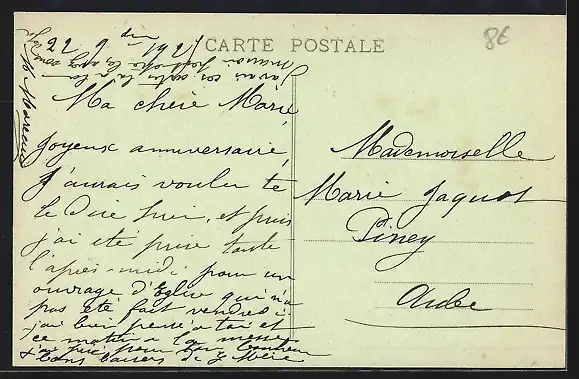 8€
CARTE POSTALE
22 9bre 192
Ma chère Marie
Joyeux anniversaire,
J'aurais voulu te
le dire hier, et puis
j'ai été prise toute
l'après-midi pour un
ouvrage d'Eglise qui n'a
pas été fait vendredi
j'ai bien pensé à toi et
ce matin à la messe
j'ai prié pour ton bonheur
bons baisers de
Mademoiselle
Marie Jaquot
Piney
Aube